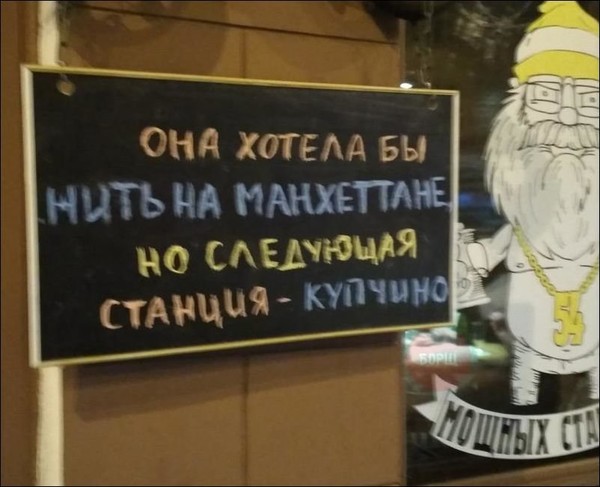 ОНА ХОТЕЛА БЫ
ЖИТЬ НА МАНХЕТТАНЕ,
НО СЛЕДУЮЩАЯ
СТАНЦИЯ - КУПЧИНО
54
БОРЩ
МОЩНЫХ